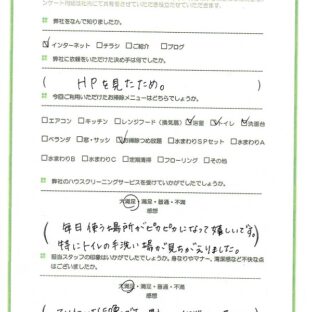 ンケート用紙は社内にて共有をさせていただき役立たせていただきます。
弊社をなんで知りましたか。
☑インターネット □チラシ □ご紹介 □ブログ
弊社に依頼をいただけた決め手は何でしたか。
( HPを見たため。 )
今回ご利用いただけたお掃除メニューはどちらでしょうか。
□エアコン □キッチン □レンジフード(換気扇) ☑浴室 ☑トイレ ☑洗面台
□ベランダ □窓・サッシ ☑お掃除つめ放題 □水まわりSPセット □水まわりA
□水まわりB □水まわりC □定期清掃 □フローリング □その他
弊社のハウスクリーニングサービスを受けていかがでしたでしょうか。
大満足・満足・普通・不満
感想
( 毎日使う場所がピカピカになって嬉しいです。
特にトイレの手洗い場が見ちがえりました。 )
担当スタッフの印象はいかがでしたでしょうか。身なりやマナー、清潔感など不快な点
はございましたか。
大満足・満足・普通・不満
感想